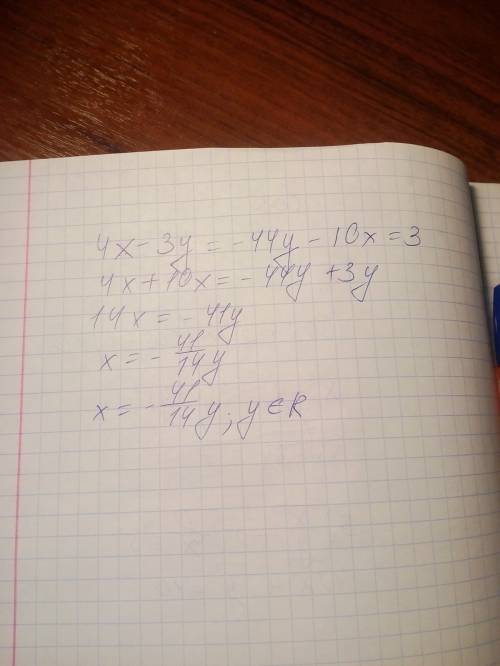 4x - 3y = -44y - 10x = 3
4x + 10x = -44y + 3y
14x = -41y
x = -41/14 y
x = -41/14 y; y ∈ R